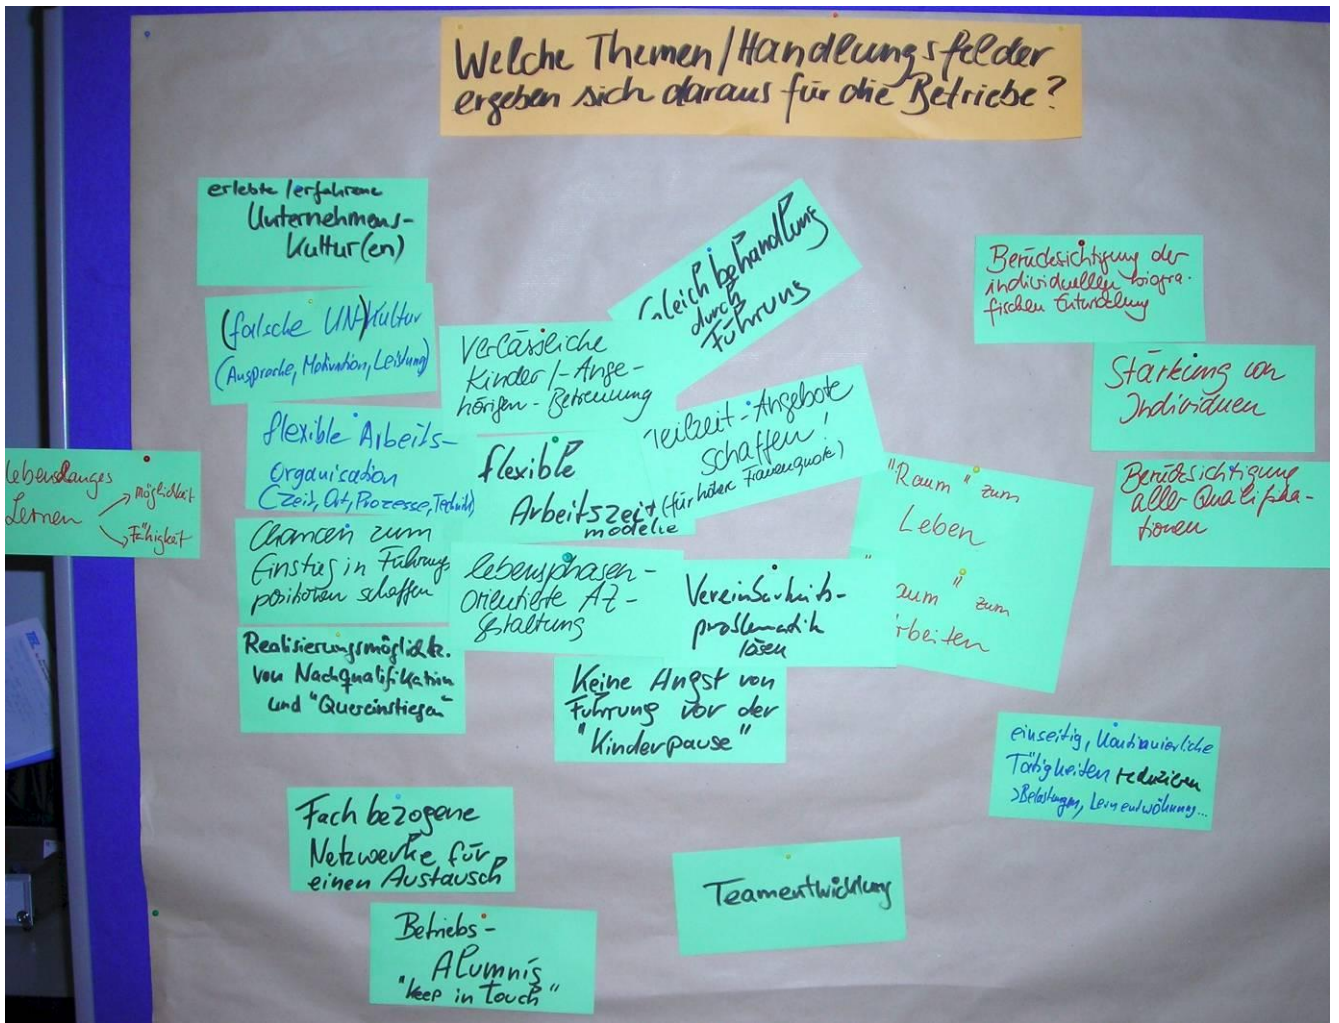 Welche Themen/Handlungsfelder
ergeben sich daraus für die Betriebe?
erlebte/erfahrene
Unternehmens-
Kultur(en)
(falsche UN)Kultur
(Ansprache, Motivation, Leistung)
flexible Arbeits-
organisation
(Zeit, Ort, Prozesse, Technik)
Chancen zum
Einstieg in Führungs
positionen schaffen
Realisierungsmöglichk.
von Nachqualifikation
und "Quereinstiegen"
Gleichbehandlung
durch
Führung
Verlässliche
Kinder/-Ange-
hörigen-Betreuung
flexible
Arbeitszeit
modelle
Teilzeit-Angebote
schaffen!
(für höhere Frauenquote)
lebensphasen-
orientierte AZ-
gstaltung
Vereinbarkeits-
problematik
lösen
Keine Angst von
Führung vor der
"Kinderpause"
"Raum" zum
Leben
" aum" zum
rbeiten
Berücksichtigung der
individuellen biogra-
fischen Entwicklung
Stärkung von
Individuen
Berücksichtigung
aller Qualifika-
tionen
lebenslanges
Lernen
möglichkeit
Fähigkeit
einseitig, kontinuierliche
Tätigkeiten reduzieren
>Belastungen, Lernentwöhnung...
Fachbezogene
Netzwerke für
einen Austausch
Betriebs-
Alumnis
"keep in Touch"
Teamentwicklung